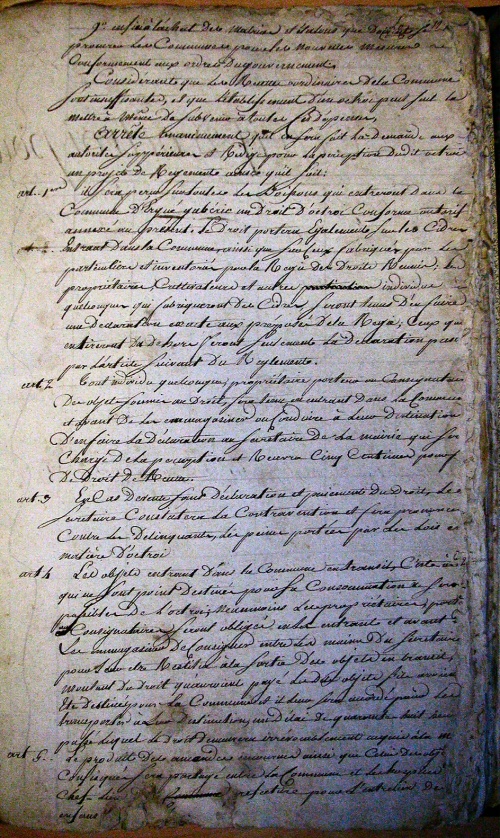 9° enfin à l'achat des Matrices et Etalons que
procurer les Communes pour les nouvelles mesures
Conformement aux ordres du gouvernement.
Considerant que les Revenus ordinaires de la Commune
sont insuffisants, et que l'établissement d'un octroi peut seul la
mettre à même de subvenir à toutes ses dépenses,
arrête unanimement qu'il en sera fait la demande aux
autorités supérieures et Rédigé pour la perception dudit octroi
un projet de Reglement ainsi qu'il suit:
art. 1er il sera perçu sur toutes les Boissons qui entreront dans la
Commune d'Ergué gabéric un Droit d'octroi Conforme au tarif
annexé au present. Le Droit portera Egalement sur les Cidres
Entrant dans la Commune, ainsi que sur Ceux fabriqués par les
particuliers et inventoriés par la Régie des Droits Reunis. Les
propriétaires, Cultivateurs et autres individus
quelconques qui fabriqueront des Cidres seront tenus d'en faire
une Declaration exacte aux preposés de la Regie; Ceux qui
en tireront de dehors feront seulement la declaration
par l'article suivant du Reglement.
art. 2 Tout individu quelconque, propriétaire porteur ou Consignataire
des objets soumis au Droit, sera tenu en entrant dans la Commune
et avant de les emmagasiner ou Conduire à leur destination
D'en faire la Declaration au Secrétaire de la mairie qui sera
Chargé de la perception et Recevra Cinq Centimes pour
Du Droit de
art. 3 En Cas d'entrée sans déclaration et paiement du Droit, le
Secretaire Constatera la Contravention et fera prononcer
Contre les Delinquants, les peines portées par les Lois en
matière D'octroi
art. 4 Les objets entrant Dans la Commune en transit, C'est à dire
qui ne sont point destinés pour sa Consommation ne sont
passibles de l'octroi; Néanmoins les propriétaires, porteurs
ou Consignataires seront obligés en les entrant et avant
Les emmagasiner de Consigner entre les mains du Secretaire
pour leur être Restitué à la sortie Des objets en transit,
montant du Droit qu'auroient payé lesdits objets s'ils avoient
Eté destinés pour la Commune et il leur sera accordé pour les
transporter à leur destination, un délai de quarante huit heures
passé lequel le Droit demeurera irrévocablement acquis à la
art. 5. Le produit des amendes encourues ainsi que Celui des objets
Confisqués sera partagé entre la Commune et les hospices
Chef-lieu de préfecture pour l'entretien des
enfans